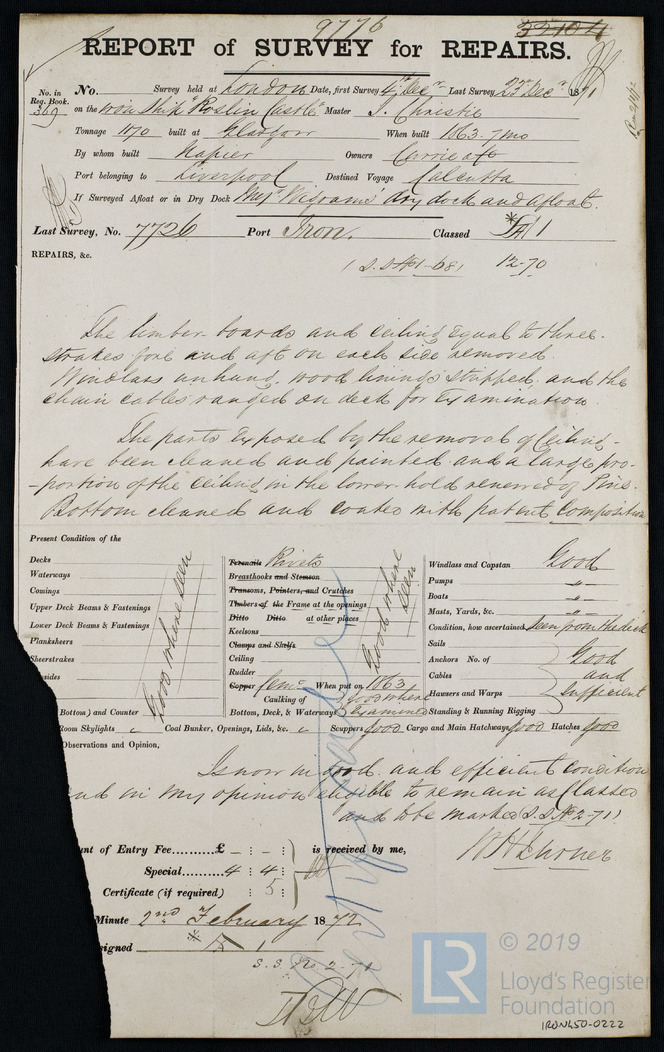 9776
REPORT of SURVEY for REPAIRS.
No. in Reg. Book. No. Survey held at London Date, first Survey 4th Decr Last Survey 23rd Decr 1871
369 on the Iron Ship "Roslin Castle" Master J. Christie
Tonnage 1170 built at Glasgow When built 1863. 7mo
By whom built Napier Owners Currie & Co
Port belonging to Liverpool Destined Voyage Calcutta
If Surveyed Afloat or in Dry Dock Messrs Wigrams' dry dock and afloat.
Last Survey, No. 7726 Port Iron. Classed 1
REPAIRS, &c.
S.S No 1-68 12-70
The limber boards and ceiling equal to three
strakes fore and aft on each side removed.
Windlass unhung, wood linings stripped, and the
chain cables ranged on deck for examination.
The parts exposed by the removal of ceiling
have been cleaned and painted and a large pro-
-portion of the ceiling in the lower hold renewed of Pine.
Bottom cleaned and coated with patent Composition
Present Condition of the
Decks
Waterways
Comings
Upper Deck Beams & Fastenings
Lower Deck Beams & Fastenings
Planksheers
Sheerstrakes
sides
Bottom) and Counter
Good where seen
Treenails Rivets
Breasthooks and Stemson
Transoms, Pointers, and Crutches
Timbers of the Frame at the openings
Ditto Ditto at other places
Keelsons
Clamps and Shelfs
Ceiling
Rudder
Copper Cemt When put on 1863
Caulking of Bottom, Deck, & Waterways good where Examined
Good where seen
Windlass and Capstan Good
Pumps "
Boats "
Masts, Yards, &c. "
Condition, how ascertained Seen from the deck
Sails
Anchors No. of
Cables
Hausers and Warps
Standing & Running Rigging
Good and Sufficient
Room Skylights Coal Bunker, Openings, Lids, &c. Scuppers good Cargo and Main Hatchways good Hatches good
Observations and Opinion,
Is now in good and efficient condition
and in my opinion eligible to remain as Classed
and to be marked S.S No 2-71
unt of Entry Fee.........£ – : – : is received by me,
Special......... 4 : 4 :
Certificate (if required) : 5 :
Minute 2nd February 1872
signed 1
S.S. No. 2-71
© 2019
LR
Lloyd's Register
Foundation
IRON450-0222